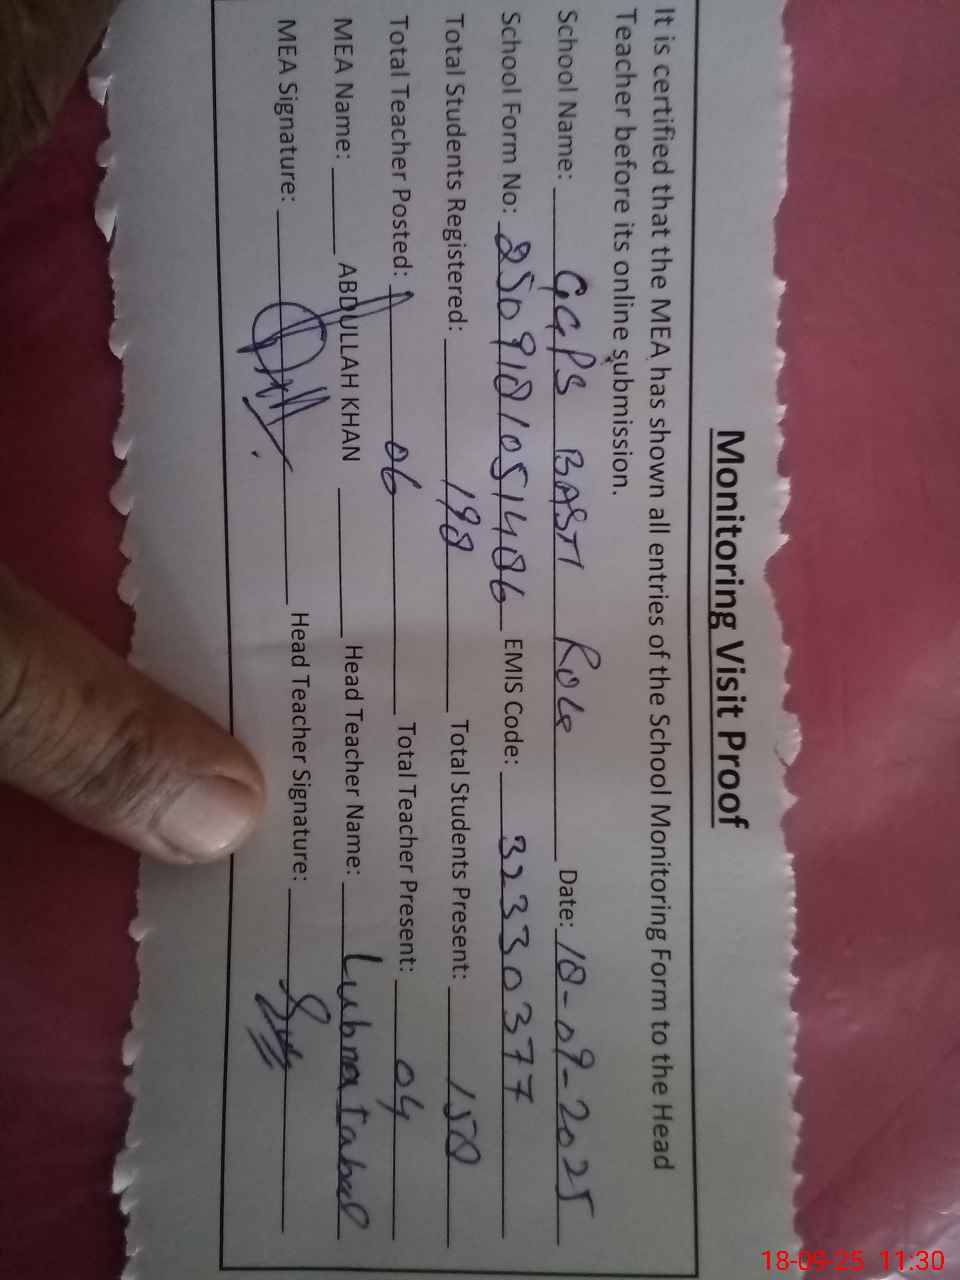 Monitoring Visit Proof
It is certified that the MEA has shown all entries of the School Monitoring Form to the Head
Teacher before its online submission.
School Name: GGPS BASTI Date: 18-09-2025
School Form No: 2509181051486 EMIS Code: 32330377
Total Students Registered: 198 Total Students Present: 158
Total Teacher Posted: 06 Total Teacher Present: 04
MEA Name: ABDULLAH KHAN Head Teacher Name: Lubna
MEA Signature: Head Teacher Signature:
18-09-25 11:30